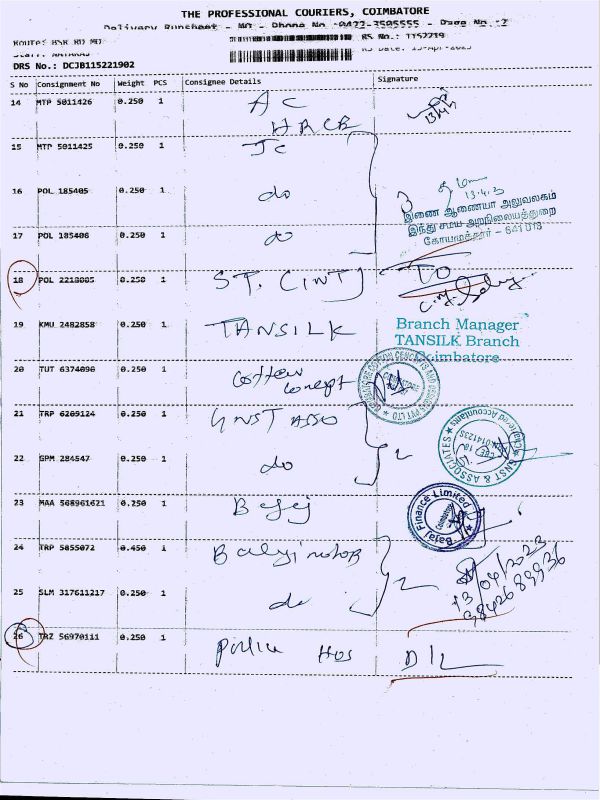 THE PROFESSIONAL COURIERS, COIMBATORE
Delivery Runsheet - MO - Phone No -0422-3505555 - Page No -2
Route: BSK RD MO RS No.: 1152219
RS Date: 13-Apr-2023
DRS No.: DCJB115221902
S No Consignment No Weight PCS Consignee Details Signature
14 MTP 5011426 0.250 1 AC
HRCE 13/4/3
15 MTP 5011425 0.250 1 JC
16 POL 185405 0.250 1 do 3
13.4.3
இணை ஆணையர் அலுவலகம்
இந்து சமய அறநிலையத்துறை
கோயமுத்தூர் - 641 018
17 POL 185406 0.250 1 do
18 POL 2218005 0.250 1 ST. CINTJ TO
19 KMU 2482858 0.250 1 TANSILK
Branch Manager
TANSILK Branch
Coimbatore
20 TUT 6374090 0.250 1 Cotton
Concept
21 TRP 6209124 0.250 1 GNST ASSO
GNST & ASSOCIATES Chartered Accountants
22 GPM 284547 0.250 1 do 2
23 MAA 508961621 0.250 1 Bajaj
Bajaj Finance Limited
Coimbatore
24 TRP 5855072 0.450 1
25 SLM 317611217 0.250 1 do 2
13/04/2023
26 TRZ 56970111 0.250 1 Police Hos D/L